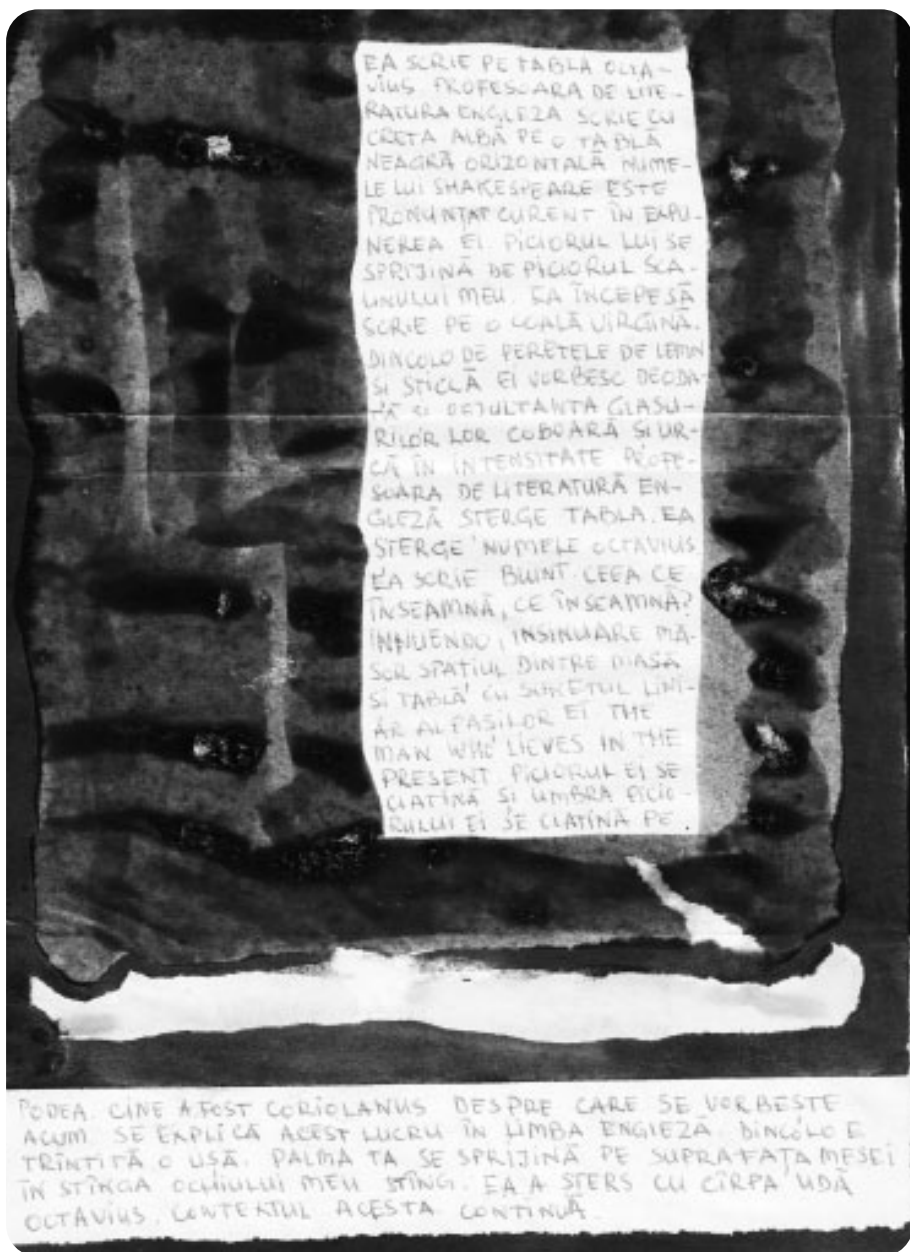 EA SCRIE PE TABLA OCTA-
VIUS PROFESOARA DE LITE-
RATURA ENGLEZA SCRIE CU
CRETA ALBĂ PE O TABLĂ
NEAGRĂ ORIZONTALĂ NUME-
LE LUI SHAKESPEARE ESTE
PRONUNȚAT CURENT ÎN EXPU-
NEREA EI. PICIORUL LUI SE
SPRIJINĂ DE PICIORUL SCA-
UNULUI MEU. EA ÎNCEPE SĂ
SCRIE PE O COALĂ VIRGINĂ.
DINCOLO DE PERETELE DE LEMN
SI STICLĂ EI VORBESC DEODA-
TĂ SI REZULTANTA GLASU-
RILOR LOR COBOARĂ SI UR-
CĂ ÎN INTENSITATE PROFE-
SOARA DE LITERATURĂ EN-
GLEZĂ STERGE TABLA. EA
STERGE NUMELE OCTAVIUS
EA SCRIE BLUNT. CEEA CE
ÎNSEAMNĂ, CE ÎNSEAMNĂ?
INNUENDO, INSINUARE MĂ-
SOR SPATIUL DINTRE MASĂ
SI TABLĂ CU SUNETUL LINI-
AR AL PASILOR EI THE
MAN WHO LIEVES IN THE
PRESENT. PICIORUL EI SE
CLATINĂ SI UMBRA PICIO-
RULUI EI SE CLATINĂ PE
PODEA. CINE A FOST CORIOLANUS DESPRE CARE SE VORBESTE
ACUM. SE EXPLICĂ ACEST LUCRU ÎN LIMBA ENGLEZA. DINCOLO E
TRÎNTITĂ O USĂ. PALMA TA SE SPRIJINĂ PE SUPRAFAȚA MESEI
ÎN STÎNGA OCHIULUI MEU STÎNG. EA A STERS CU CÎRPA UDĂ
OCTAVIUS. CONTEXTUL ACESTA CONTINUĂ